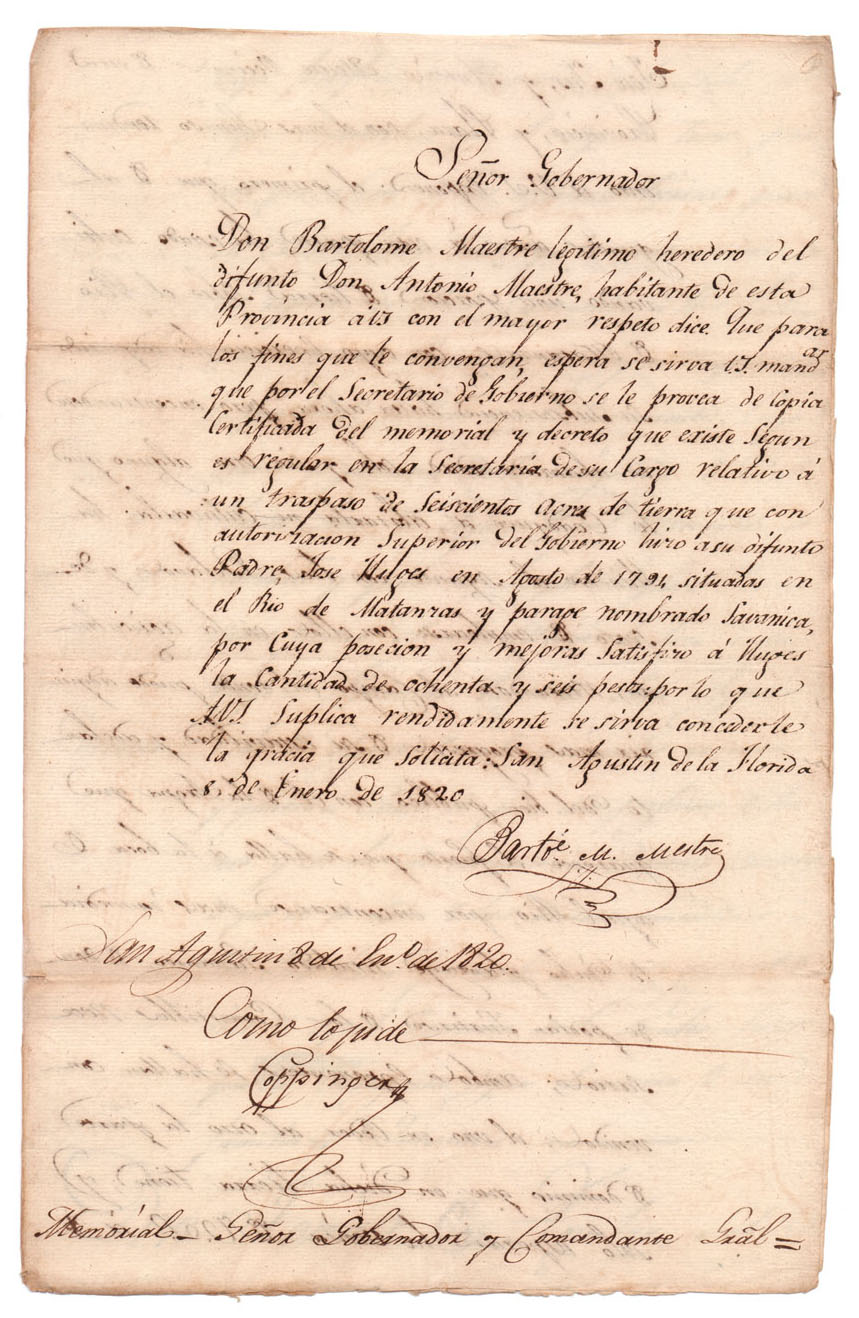 Señor Gobernador
Don Bartolome Maestre legitimo heredero del
difunto Don Antonio Maestre, habitante de esta
Provincia a US con el mayor respeto dice. Que para
los fines que le convengan, espera se sirva US. mandar
que por el Secretario de Gobierno se le provea de Copia
Certificada del memorial y decreto que existe Segun
es regular en la Secretaria de su Cargo relativo á
un traspaso de Seiscientos Acres de tierra que con
autorizacion Superior del Gobierno hizo a su difunto
Padre, Jose Huges en Agosto de 1794 situadas en
el Rio de Matanzas y parage nombrado Savanica,
por Cuya posecion y mejoras Satisfizo á Huges
la Cantidad de ochenta y seis pests: por lo que
A.V.S. Suplica rendidamente se sirva concederle
la gracia que Solicita: San Agustin de la Florida
8 de Enero de 1820
Barte. M. Mestre
San Agustin 8 de Eno. de 1820.
Como lo pide
Coppinger
Memórial - Señor Gobernador y Comandante Gral =